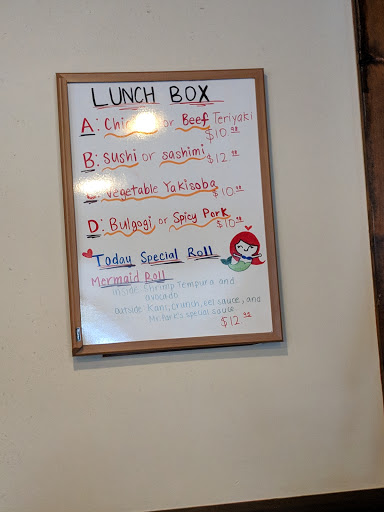 LUNCH BOX
A: Chicken or Beef Teriyaki
$10.00
B: Sushi or sashimi $12
Vegetable Yakisoba $10
D: Bulgogi or Spicy Pork
$10
Today Special Roll
Mermaid Roll
inside: Shrimp Tempura and
avocado
outside: Kani, crunch, eel sauce, and
special sauce
$12